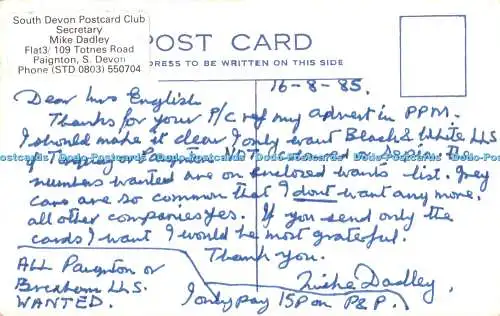 South Devon Postcard Club
Secretary
Mike Dadley
Flat3/ 109 Totnes Road
Paignton, S. Devon
Phone (STD 0803) 550704
POST CARD
ADDRESS TO BE WRITTEN ON THIS SIDE
16-8-85.
Dear Mrs English
Thanks for your P/C ref my advert in PPM.
I should make it clear I only want Black & White LLS
of Torquay Paignton
numbers wanted are on enclosed wants list. Grey
cans are so common that I dont want any more.
all other companies yes. If you send only the
cards I want I would be most grateful.
Thank you.
Mike Dadley.
ALL Paignton or
Brixham LLS.
WANTED.
I only pay 15P on P&P.
Postcards